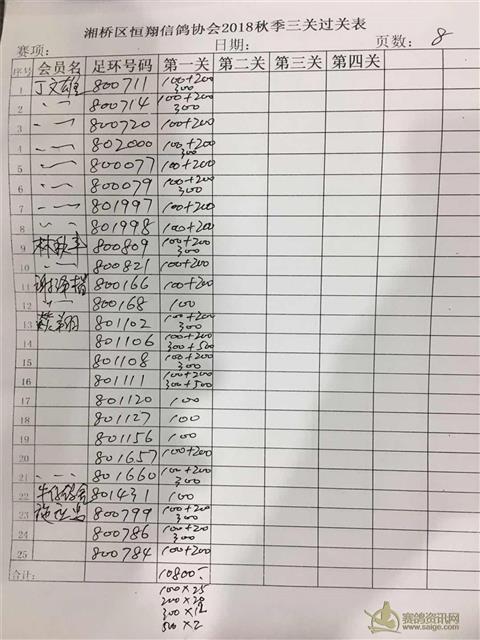 湘桥区恒翔信鸽协会2018秋季三关过关表
赛项: 日期: 页数: 8
序号 会员名 足环号码 第一关 第二关 第三关 第四关
1 丁文雄 800711 100+200 300
2 〃 800714 100+200 300
3 〃 800720 100+200
4 〃 802000 100+200 300
5 〃 800077 100+200
6 〃 800079 100+200 300
7 〃 801997 100+200
8 〃 801998 100+200
9 林 800809 100+200 300
10 〃 800821 100+200
11 谢 800166 100+200
12 〃 800168 100
13 翔 801102 100+200 300
14 801106 100+200 300+500
15 801108 100+200 300
16 801111 100+200 300+500
17 801120 100
18 801127 100
19 801156 100
20 801657 100+200
21 〃 801660 100+200 300
22 801431 100
23 800799 100+200 300
24 800786 100+200 300
25 800784 100+200
合计: 10800-
100×25
200×20
300×12
500×2
赛鸽资讯网
www.saige.com